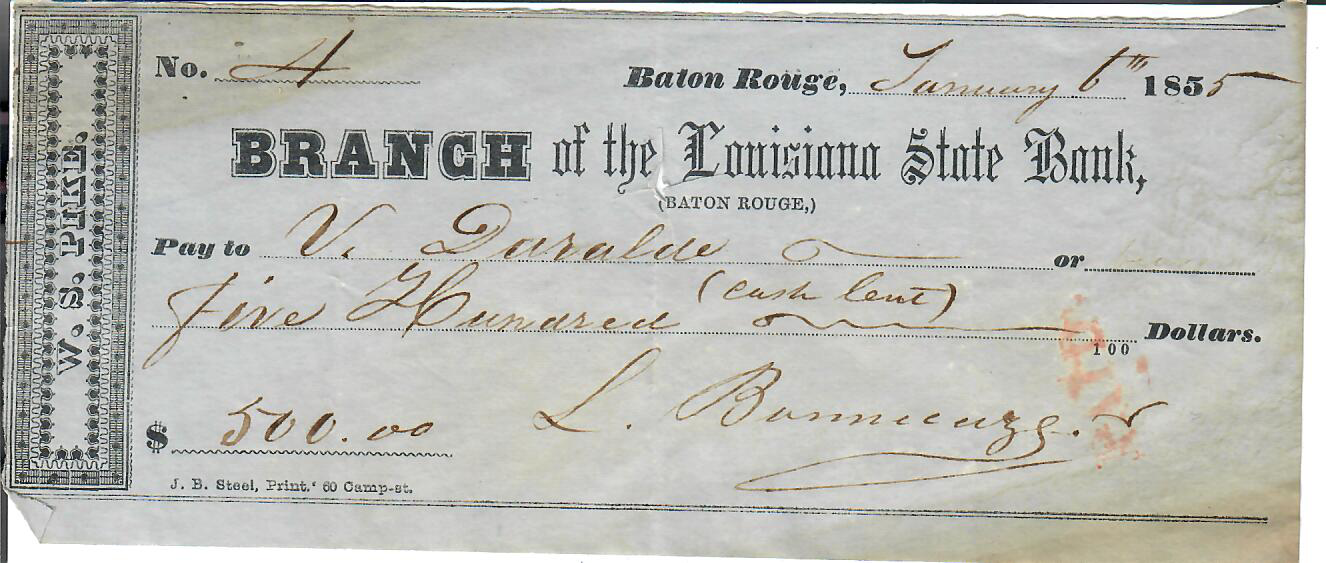 W. S. PIKE.
No. 4
Baton Rouge, January 6th 1855
BRANCH of the Louisiana State Bank,
(BATON ROUGE,)
Pay to V. Daralde or
(cash lent)
Five Hundred Dollars.
100
$ 500.00 L.
J. B. Steel, Print.' 60 Camp-st.
PAID